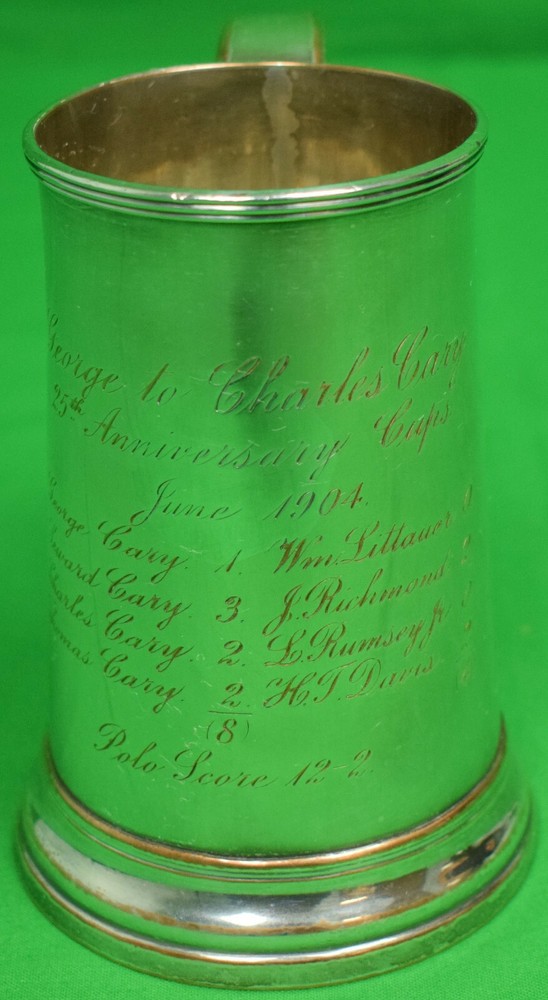 George to Charles Cary
25th Anniversary Cups
June 1904.
George Cary. 1. Wm. Littauer
Seward Cary. 3. J. Richmond
Charles Cary. 2. L. Rumsey Jr.
Thomas Cary. 2. H.T. Davis
(8)
Polo Score 12-2.